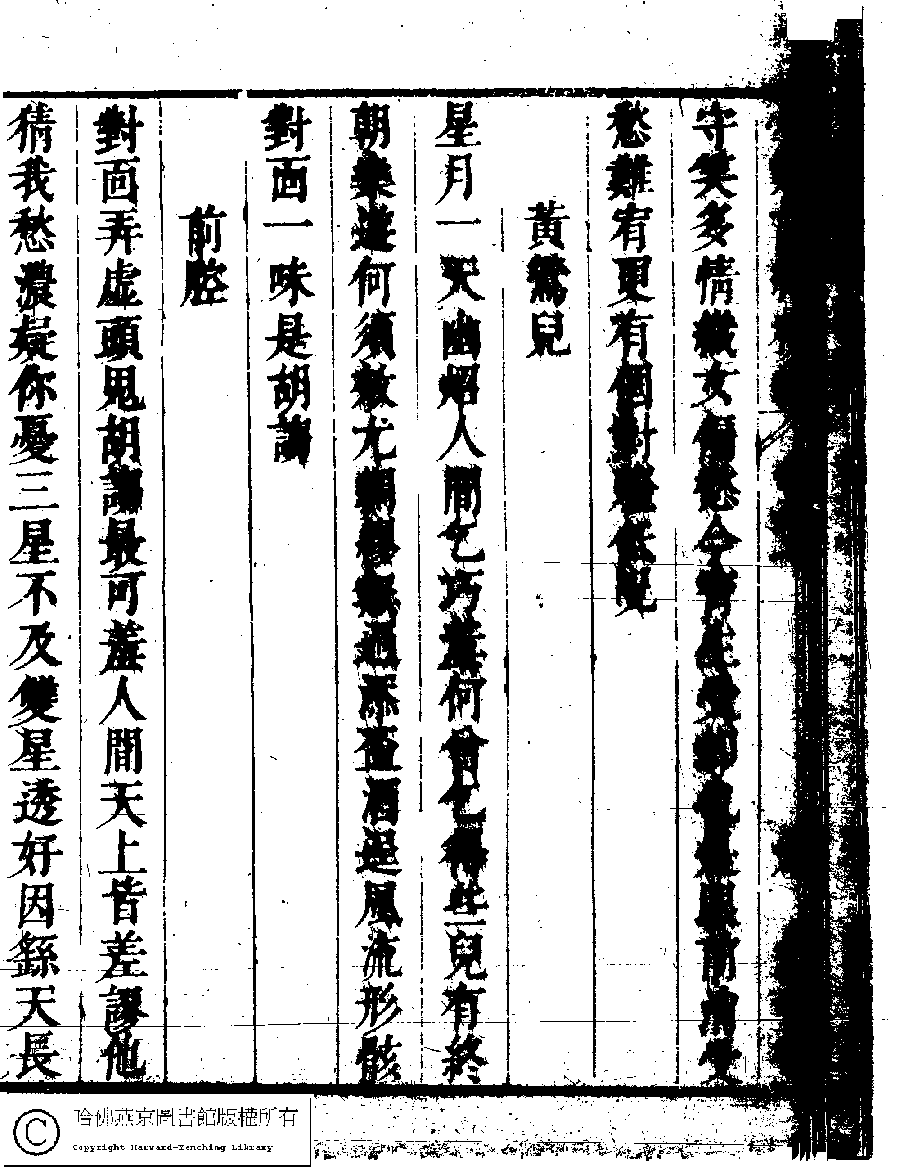 守笑多情織女偏愁今宵生受卻也是眼前消受
愁難宥更有個對低
黃鶯兒
星月一天幽照人間乞巧羞何曾乞得些兒有終
朝樂遊何須教尤無過添盃酒逞風流形骸
對面一味是胡謅
前腔
對面弄虛頭鬼胡謅最可羞人間天上皆差謬他
猜我愁濃疑你憂三星不及雙星透好因繇天長
哈佛燕京圖書館版權所有
Copyright Harvard-Yenching Library